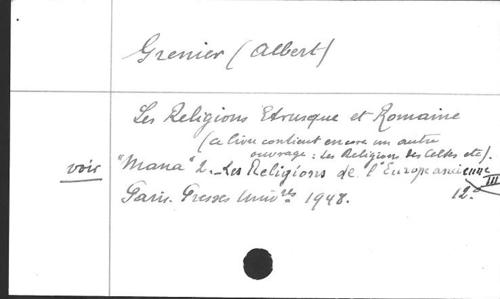 Grenier (Albert)
Les Religions Etrusque et Romaine
(ce livre contient encore un autre
ouvrage : Les Religions des Celtes etc).
voir "Mana" 2. - Les Religions de l'Europe ancienne
III
Paris. Presses Univres 1948. 12°